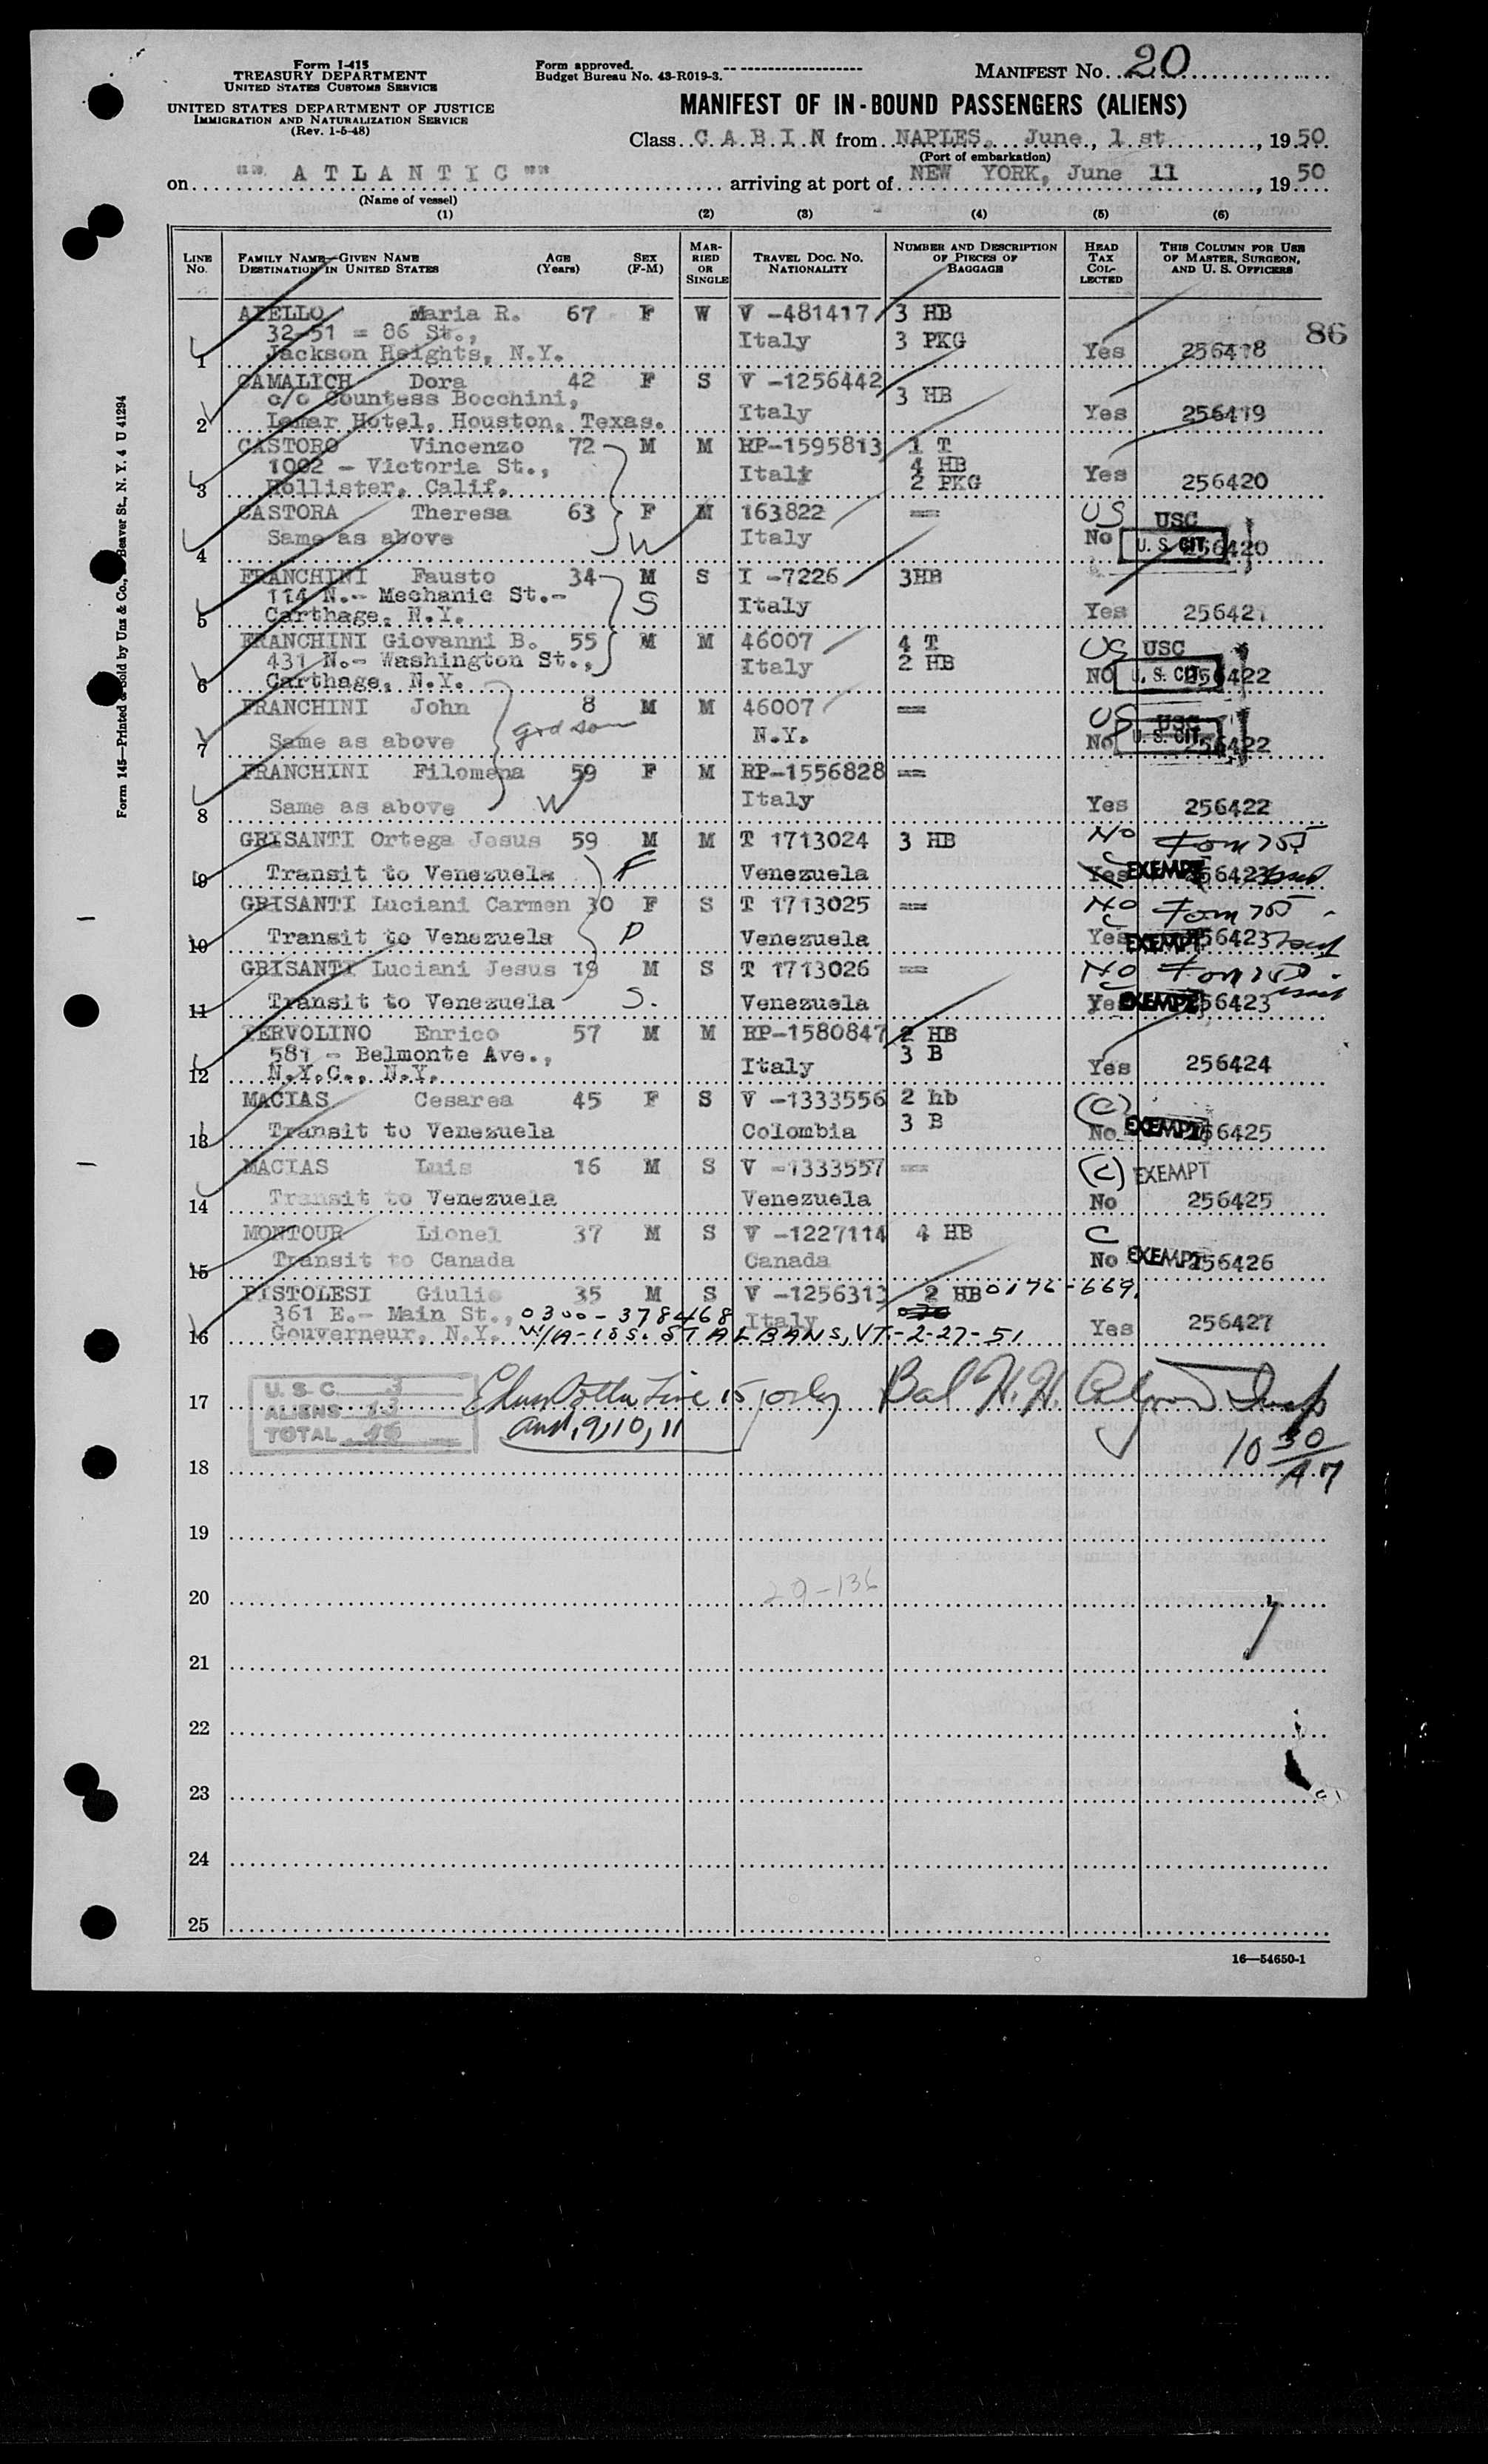 Form I-415
TREASURY DEPARTMENT
UNITED STATES CUSTOMS SERVICE
UNITED STATES DEPARTMENT OF JUSTICE
IMMIGRATION AND NATURALIZATION SERVICE
(Rev. 1-5-48)
Form approved.
Budget Bureau No. 43-R019-3.
MANIFEST No. 20
MANIFEST OF IN-BOUND PASSENGERS (ALIENS)
Class C A B I N from NAPLES, June, 1 st, 1950
(Port of embarkation)
on "" A T L A N T I C "" arriving at port of NEW YORK, June 11, 1950
(Name of vessel)
(1) (2) (3) (4) (5) (6)
LINE No. FAMILY NAME—GIVEN NAME DESTINATION IN UNITED STATES AGE (Years) SEX (F-M) MARRIED OR SINGLE TRAVEL DOC. NO. NATIONALITY NUMBER AND DESCRIPTION OF PIECES OF BAGGAGE HEAD TAX COLLECTED THIS COLUMN FOR USE OF MASTER, SURGEON, AND U. S. OFFICERS
AIELLO Maria R. 67 F W V -481417 3 HB
32-51 = 86 St., Italy 3 PKG 86
1 Jackson Heights, N.Y. Yes 256418
CAMALICH Dora 42 F S V -1256442
c/o Countess Bocchini, 3 HB
2 Lamar Hotel, Houston, Texas. Italy Yes 256419
CASTORO Vincenzo 72 M M RP-1595813 1 T
1002 - Victoria St., Italy 4 HB Yes
3 Hollister, Calif. 2 PKG 256420
CASTORA Theresa 63 F M 163822 == US USC
4 Same as above W Italy No U. S. CIT. 256420
FRANCHINI Fausto 34 M S I -7226 3HB
114 N.- Mechanic St.- S Italy
5 Carthage, N.Y. Yes 256421
FRANCHINI Giovanni B. 55 M M 46007 4 T US USC
431 N.- Washington St., Italy 2 HB
6 Carthage, N.Y. NO U. S. CIT. 256422
FRANCHINI John 8 M M 46007 == US USC
7 Same as above grd son N.Y. No U. S. CIT. 256422
FRANCHINI Filomena 59 F M RP-1556828 ==
8 Same as above W Italy Yes 256422
GRISANTI Ortega Jesus 59 M M T 1713024 3 HB No
9 Transit to Venezuela F Venezuela Yes EXEMPT 256423
GRISANTI Luciani Carmen 30 F S T 1713025 == No
10 Transit to Venezuela D Venezuela Yes EXEMPT 256423
GRISANTI Luciani Jesus 19 M S T 1713026 == No
11 Transit to Venezuela S. Venezuela Yes EXEMPT 256423
IERVOLINO Enrico 57 M M RP-1580847 2 HB
581 - Belmonte Ave., 3 B
12 N.Y.C., N.Y. Italy Yes 256424
MACIAS Cesarea 45 F S V -1333556 2 hb (C)
13 Transit to Venezuela Colombia 3 B No EXEMPT 256425
MACIAS Luis 16 M S V -1333557 == (C) EXEMPT
14 Transit to Venezuela Venezuela No 256425
MONTOUR Lionel 37 M S V -1227114 4 HB C
15 Transit to Canada Canada No EXEMPT 256426
PISTOLESI Giulio 35 M S V -1256313 2 HB 0176-669.
361 E.- Main St., 0300-378468 Italy
16 Gouverneur, N.Y. W/A-iss. ST ALBANS, VT.-2-27-51 Yes 256427
17
U. S. C. 3
ALIENS 13
TOTAL 16
Line 15 only
and, 9, 10, 11
Bal H. H. Insp
10 30/AM
18
19
20 29-136
21
22
23
24
25
16—54650-1
Form 145—Printed & Sold by Unz & Co., Beaver St., N. Y. 4 U 41294